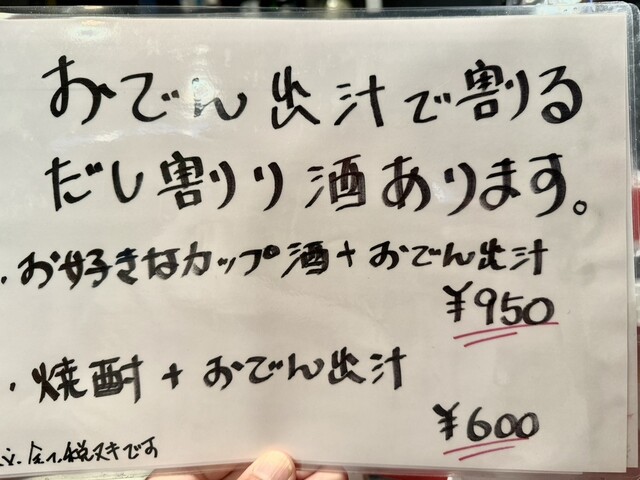 おでん出汁で割る
だし割りり酒あります。
・お好きなカップ酒+おでん出汁
¥950
・焼酎+おでん出汁
¥600
注.全て税ヌキです